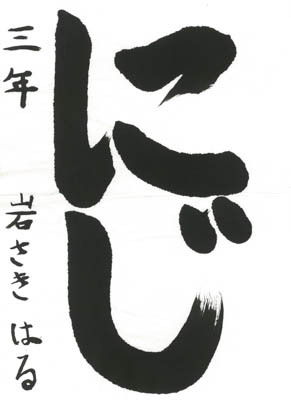 にじ
三年 岩さき はる